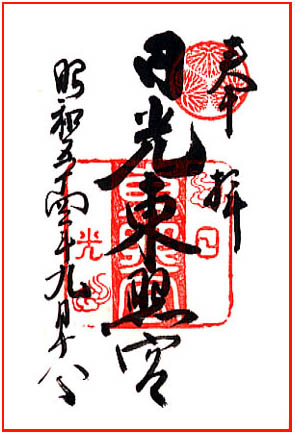 奉拝
日光東照宮
昭和五十四年九月十八日
日
光